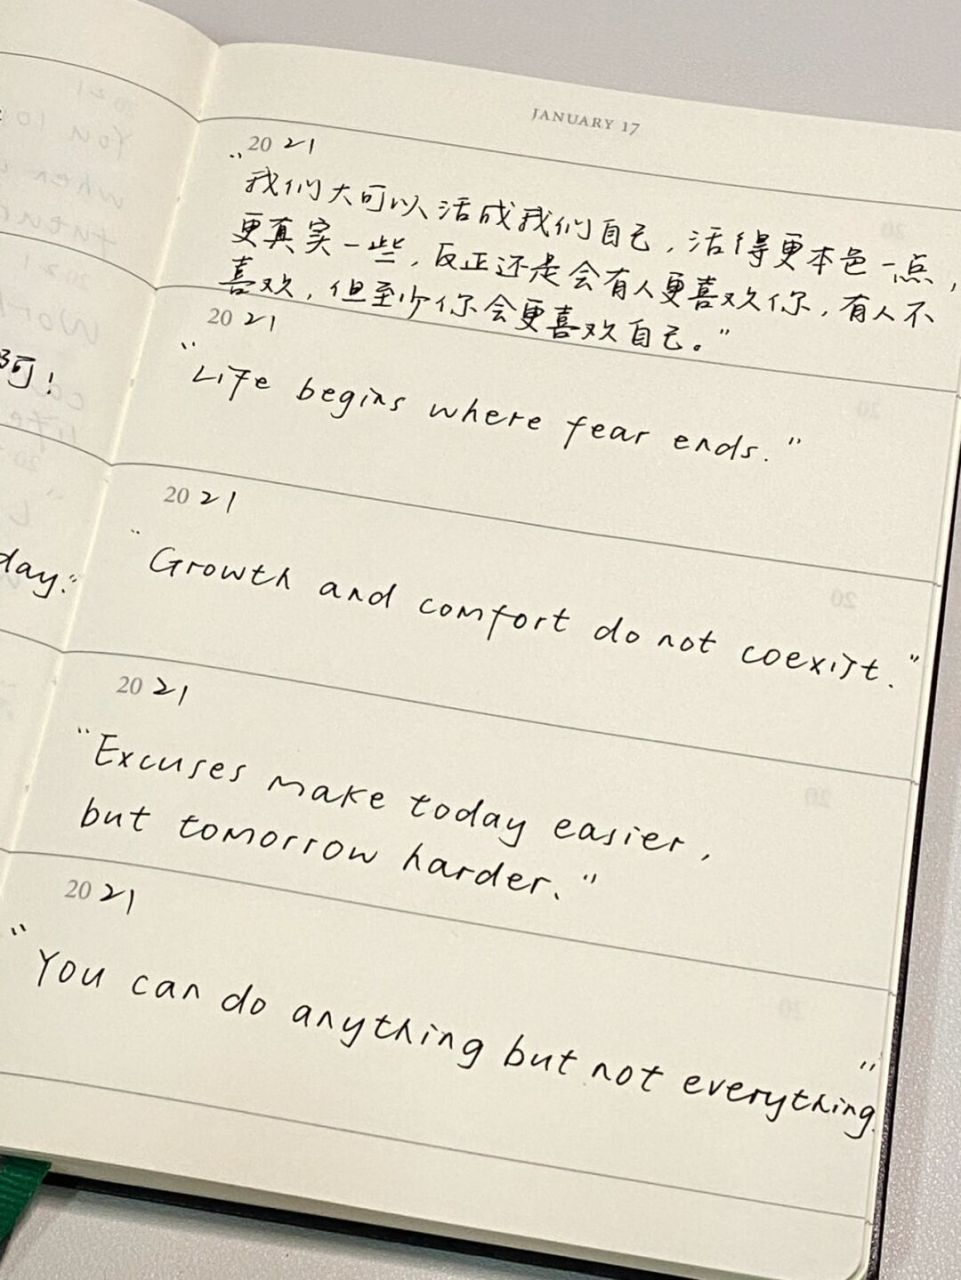 JANUARY 17
2021
"我们大可以活成我们自己，活得更本色一点，
更真实一些，反正还是会有人更喜欢你，有人不
喜欢，但至少你会更喜欢自己。"
2021
"Life begins where fear ends."
2021
"Growth and comfort do not coexist."
2021
"Excuses make today easier,
but tomorrow harder."
2021
"You can do anything but not everything."
阿！
day."